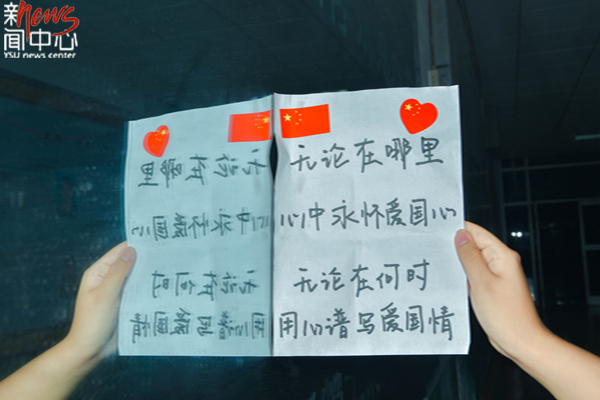 新闻中心
news
YSU news center
无论在哪里
心中永怀爱国心
无论在何时
用心谱写爱国情